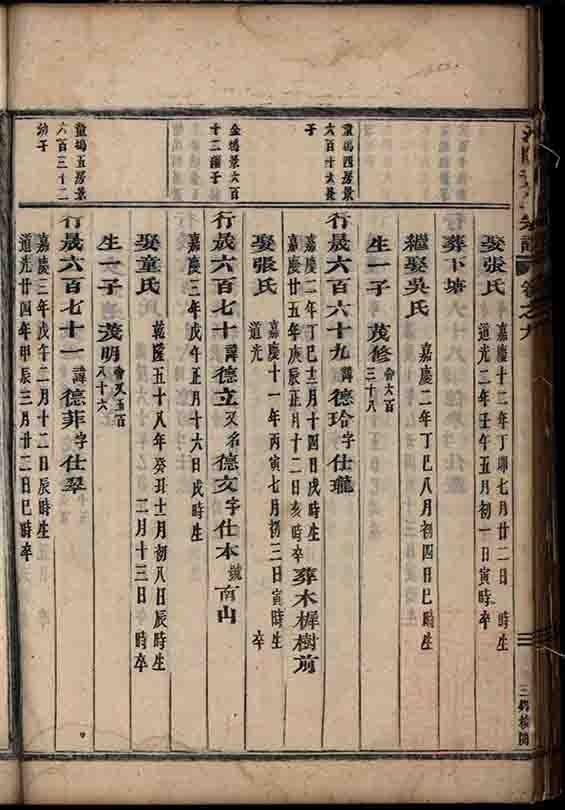 卷之九
娶張氏
嘉慶十二年丁卯七月廿二日 時生
道光二年壬午五月初一日寅時卒
葬下塘
繼娶吳氏 嘉慶二年丁巳八月初四日巳時生
生一子 茂修 會六百三十八
童塢四房景六百十六長子
行晟六百六十九 諱德玱字仕瓏
嘉慶二年丁巳十二月十四日戌時生
嘉慶廿五年庚辰正月十二日亥時卒 葬木樨樹前
娶張氏
嘉慶十一年丙寅七月初三日寅時生
道光 卒
金塢景六百十三繼子
行晟六百七十 諱德立又名德文字仕本號南山
嘉慶三年戊午正月十六日戌時生
娶童氏
乾隆五十八年癸丑十一月初八日辰時生
二月十三日 時卒
生一子 茂明 會又五百八十六
童塢五房景六百三十二幼子
行晟六百七十一 諱德菲字仕翠
嘉慶三年戊午二月十二日辰時生
道光廿四年甲辰三月廿二日巳時卒